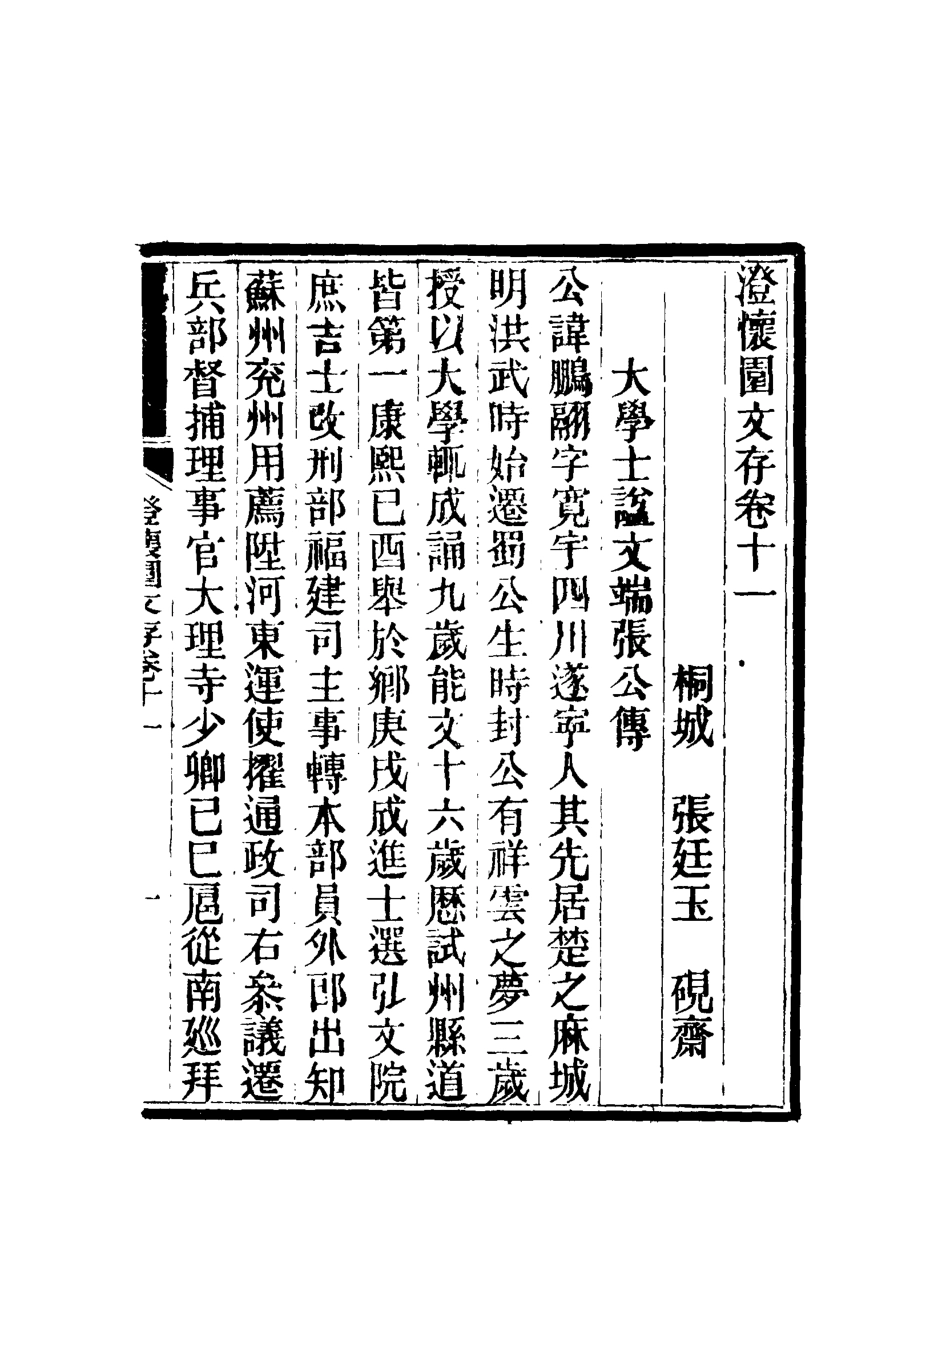 澄懷園文存卷十一
桐城　張廷玉　硯齋
大學士諡文端張公傳
公諱鵬翮字寬宇四川遂寧人其先居楚之麻城
明洪武時始遷蜀公生時封公有祥雲之夢三歲
授以大學輒成誦九歲能文十六歲歷試州縣道
皆第一康熙己酉舉於鄉庚戌成進士選弘文院
庶吉士改刑部福建司主事轉本部員外郎出知
蘇州兖州用薦陞河東運使擢通政司右叅議遷
兵部督捕理事官大理寺少卿己巳扈從南廵拜
澄懷園文存卷十一
一